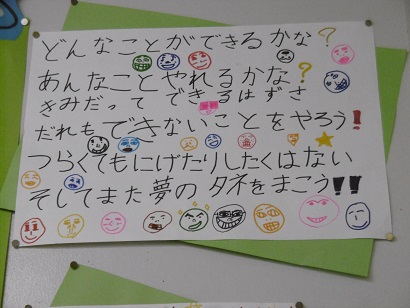 どんなことができるかな？
あんなことやれるかな？
きみだって できるはずさ
だれもできないことをやろう！
つらくてもにげたりしたくはない
そしてまた夢のタネをまこう！！